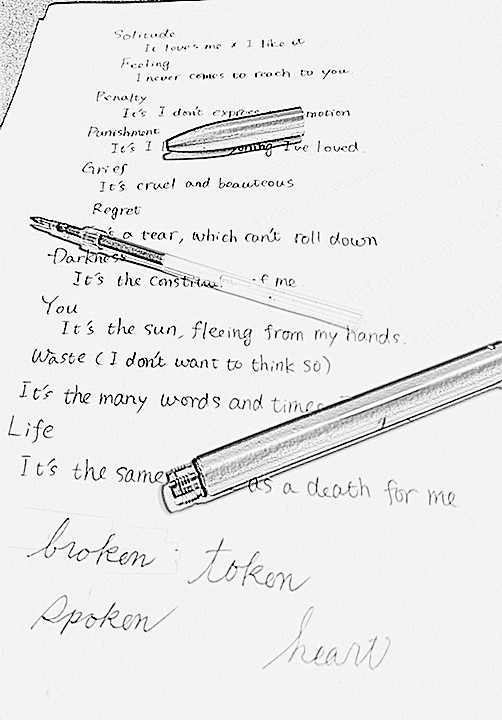 Solitude
It loves me & I like it
Feeling
I never comes to reach to you.
Penalty
It's I don't express motion
Punishment
It's I I've loved
Grief
It's cruel and beauteous
Regret
a tear, which can't roll down
Darkness
It's the of me
You
It's the sun, fleeing from my hands.
Waste (I don't want to think so)
It's the many words and times
Life
It's the same as a death for me
broken token
spoken
heart